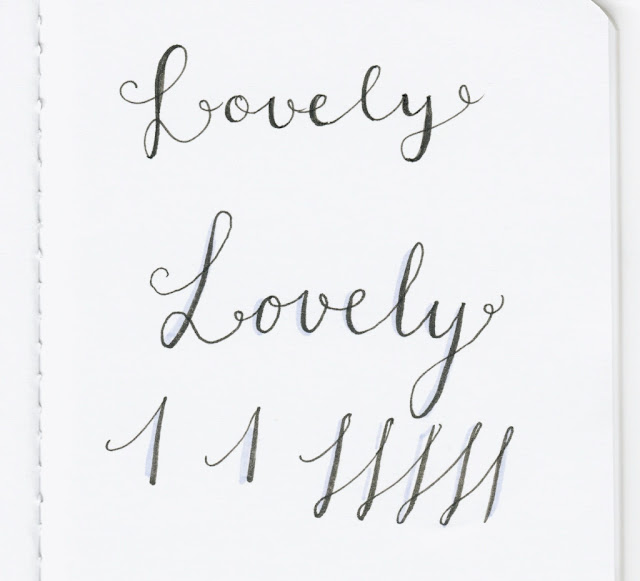 Lovely
Lovely